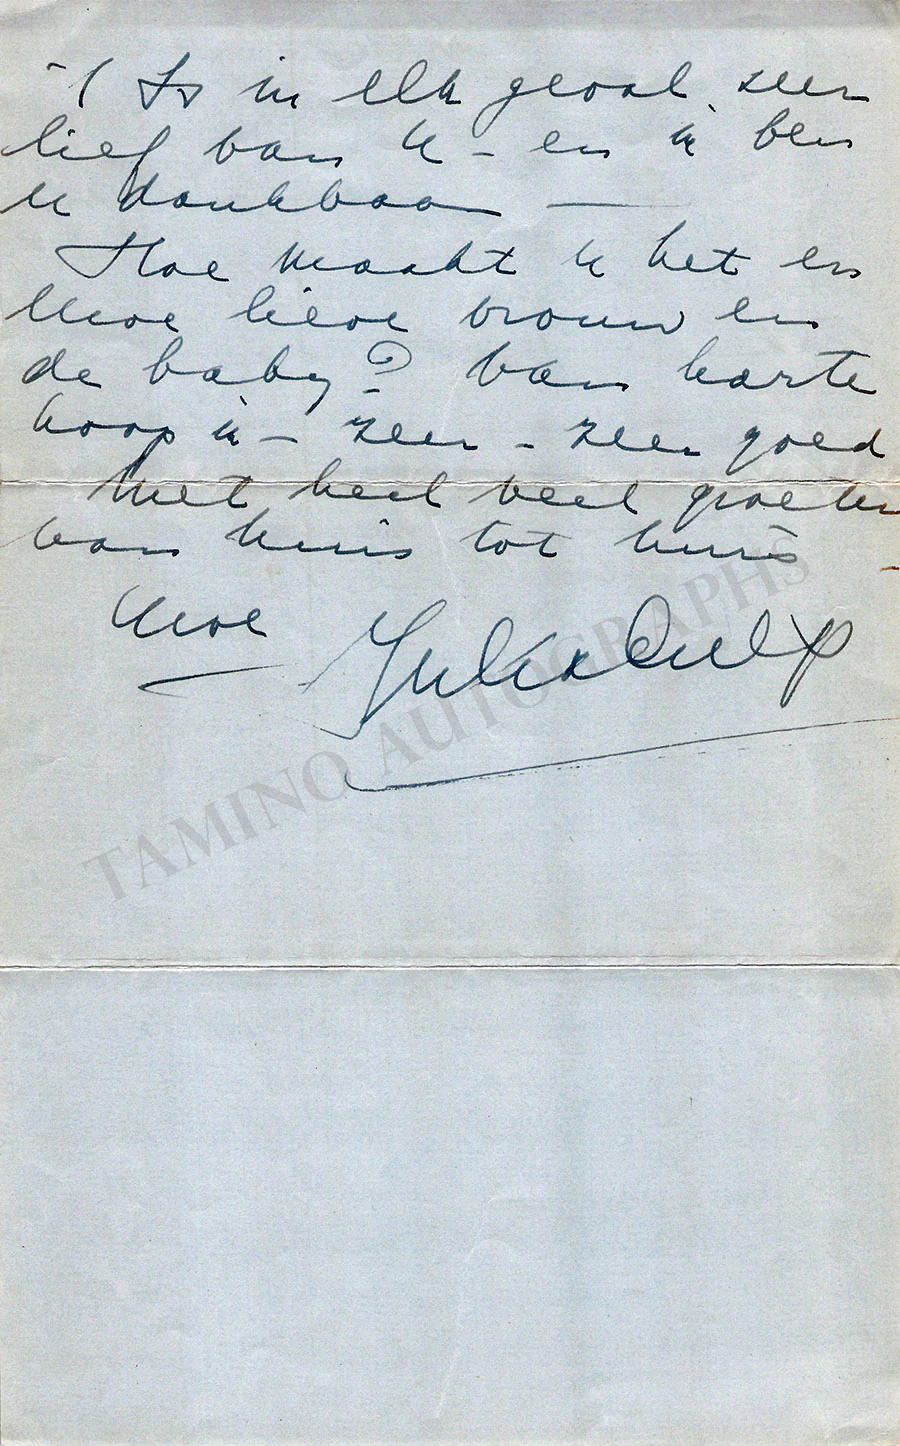 't Is in elk geval zeer
lief van u – en ik ben
u dankbaar —
Hoe maakt u het en
Uwe lieve vrouw en
de baby? Van harte
hoop ik – zeer – zeer goed
Met heel veel groeten
van huis tot huis
Uwe
Julia Culp
TAMINO AUTOGRAPHS